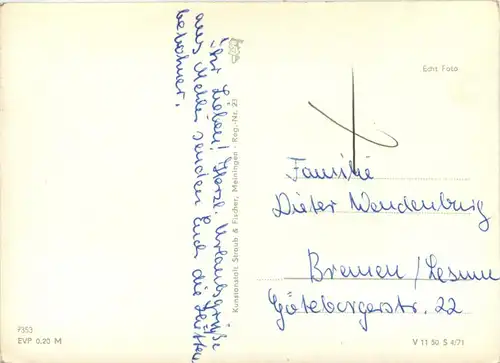 Ihr Lieben! Herzl. Urlaubsgrüße
aus Mehlis senden Euch die Hütten
bewohner.
Kunstanstalt Straub & Fischer, Meiningen - Reg.-Nr. 23
Echt Foto
Familie
Dieter Wendenburg
Bremen/Lesum
Götebergerstr. 22
9353
EVP 0,20 M
V 11 50 S 4/71